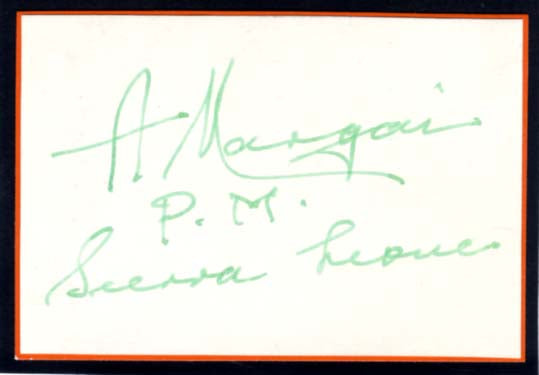 A Margai
P.M.
Sierra Leone